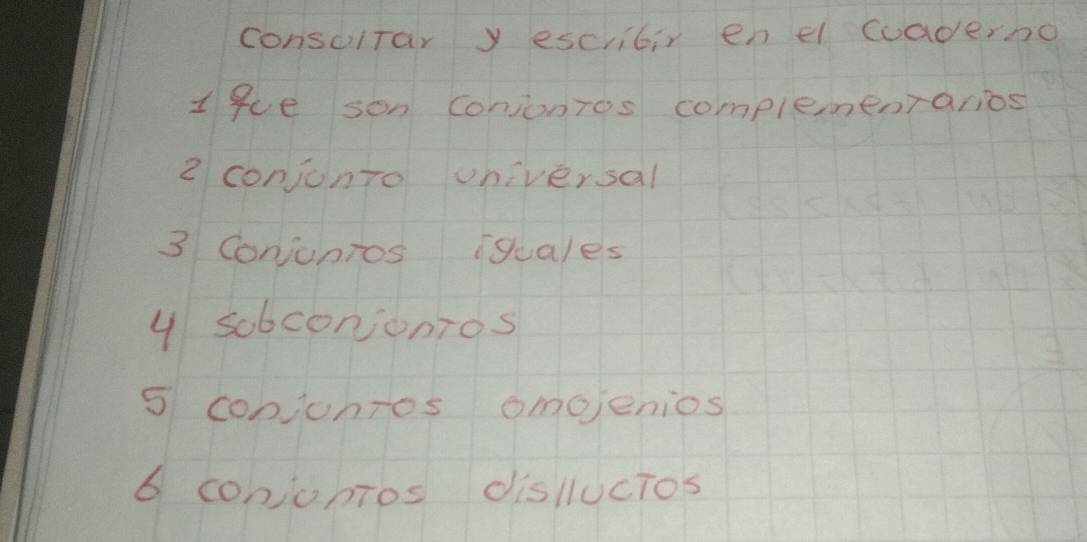 consultar y escribir en el cuaderno
1 que son conjuntos complementarios
2 conjunto universal
3 conjuntos iguales
4 subconjuntos
5 conjuntos omojenios
6 conjuntos dislluctos